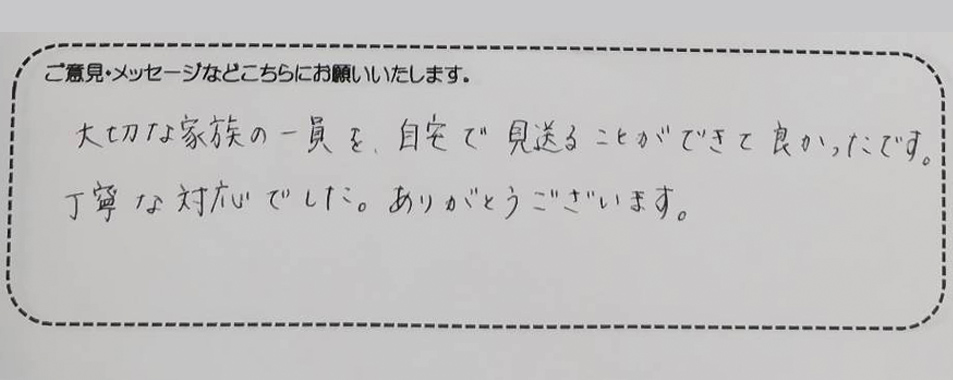 ご意見・メッセージなどこちらにお願いいたします。
大切な家族の一員を、自宅で見送ることができて良かったです。
丁寧な対応でした。ありがとうございます。